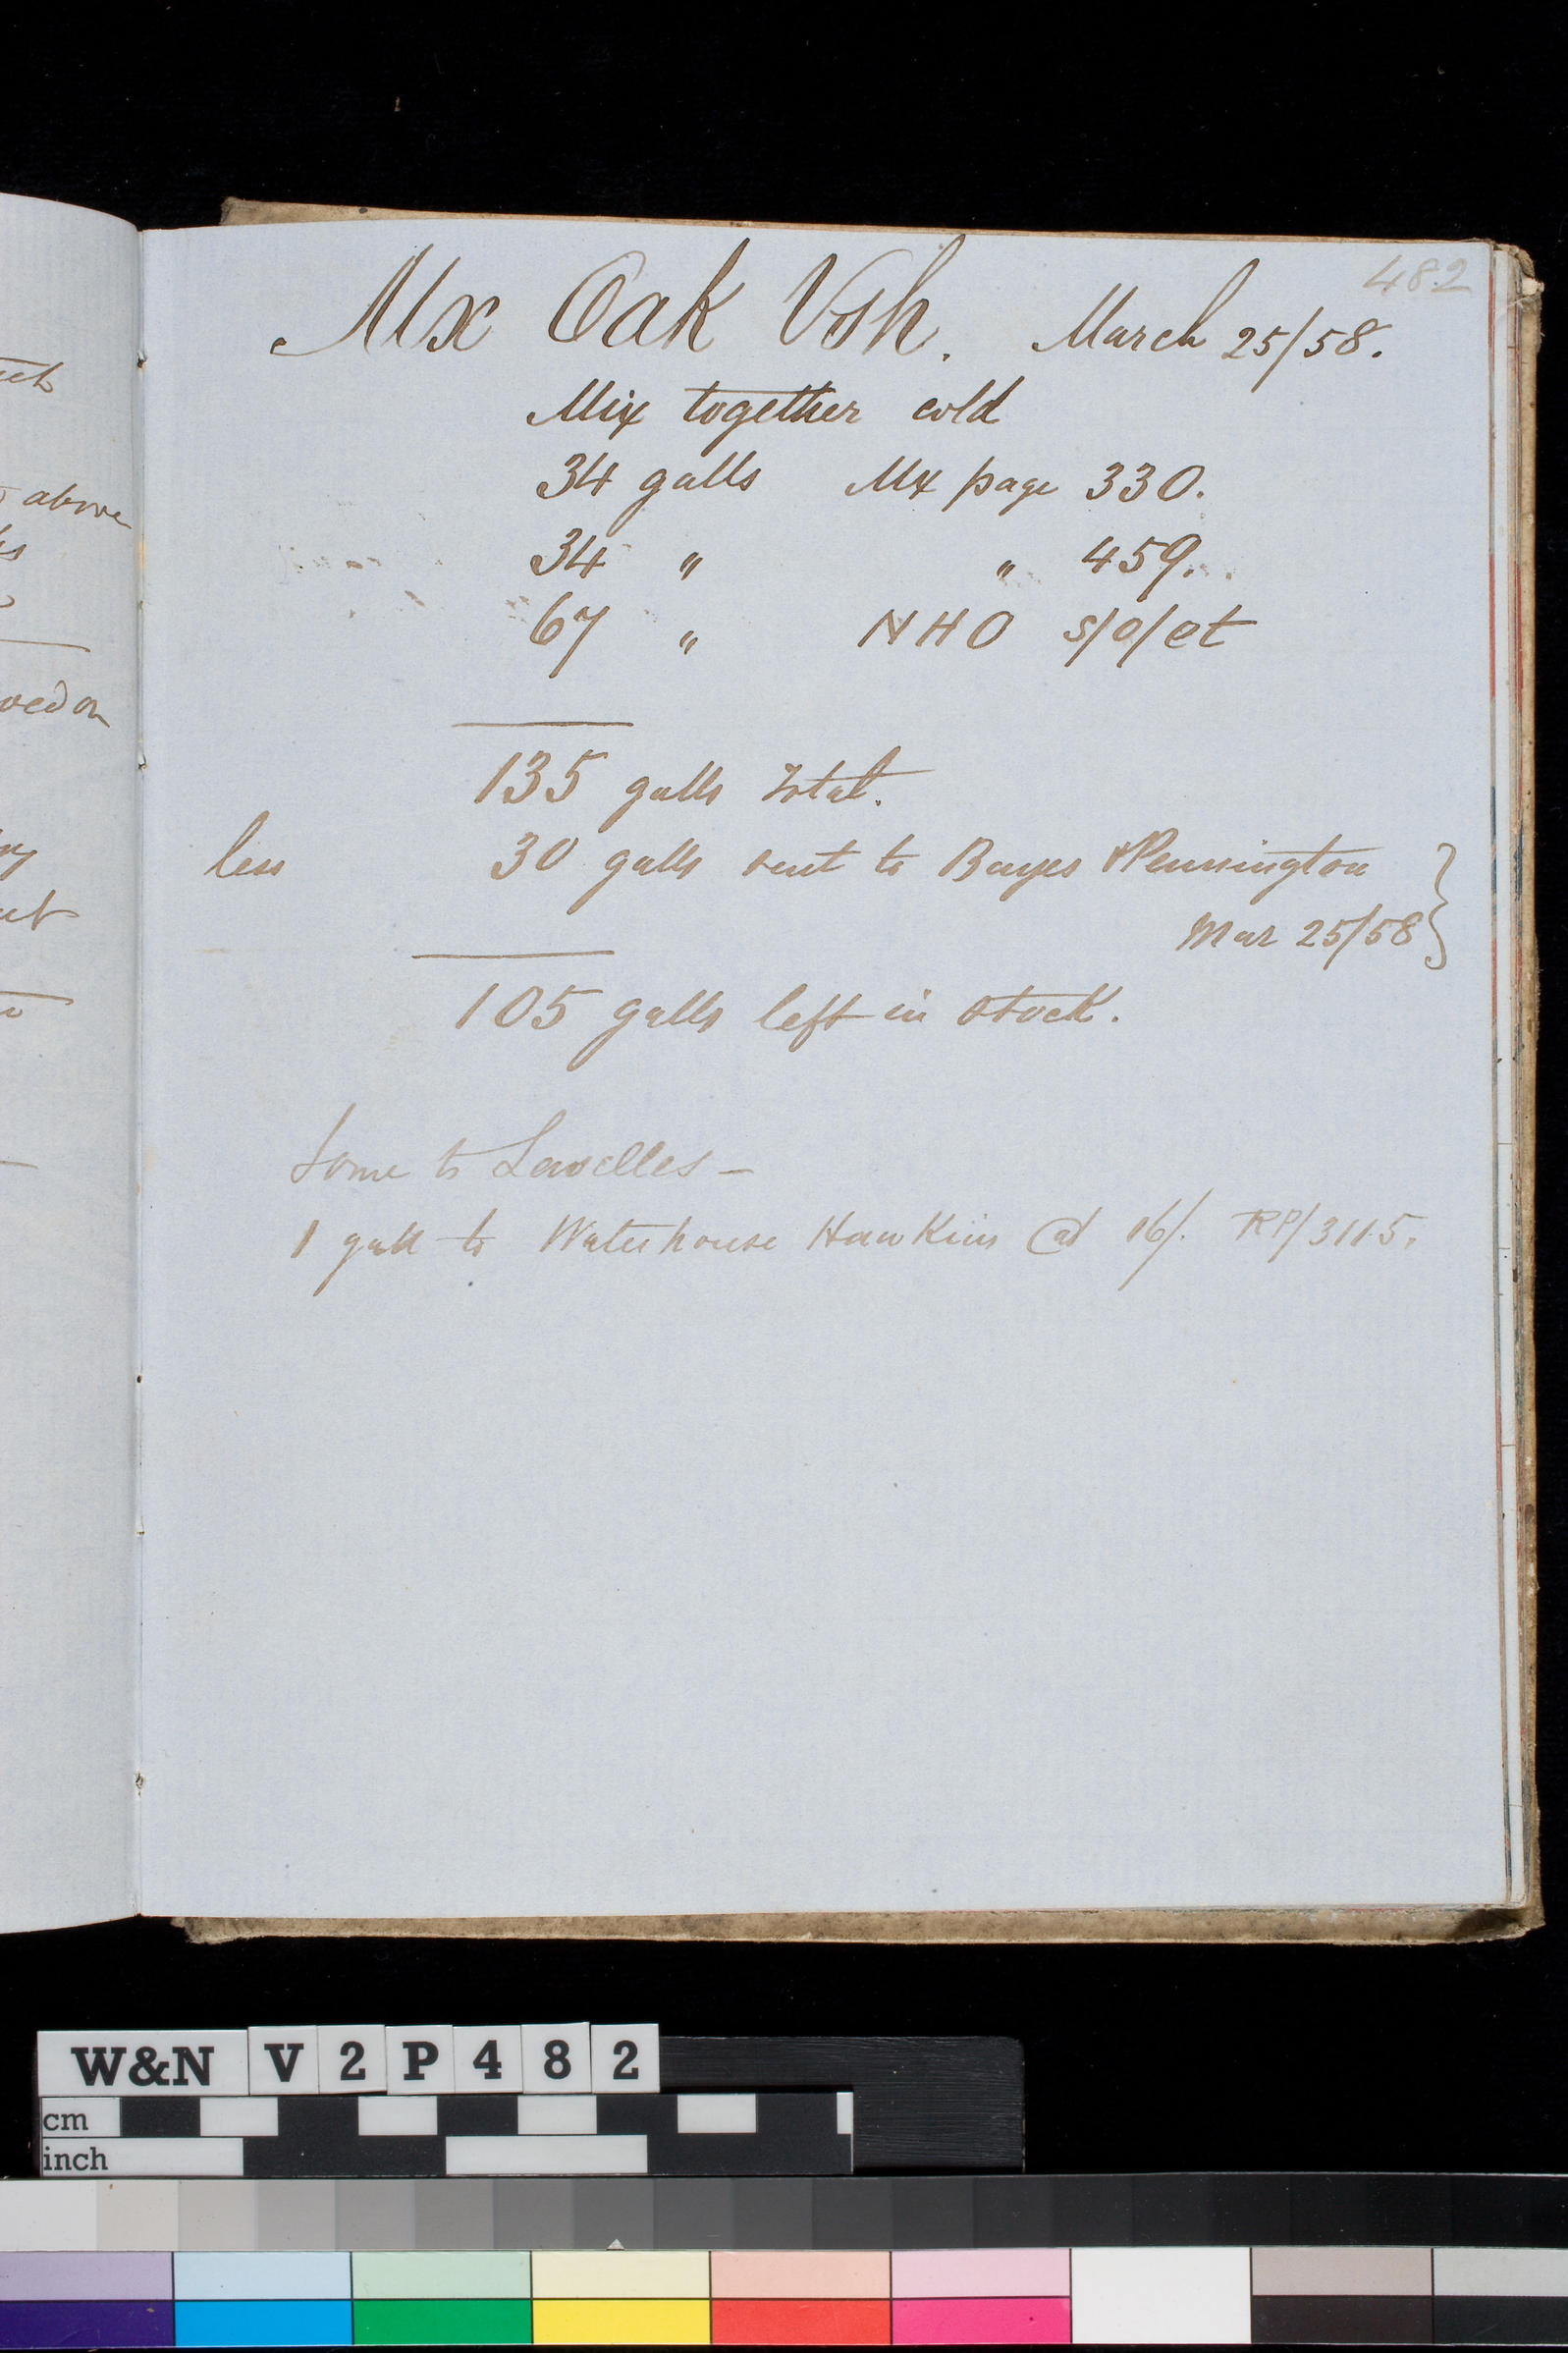 482
Mx Oak Vsh. March 25/58.
Mix together cold
34 galls Mx page 330.
34 " " 459.
67 " NHO s/o/et
135 galls Total.
less 30 galls sent to Bayes & Pennington
Mar 25/58
105 galls left in stock.
Some to Lavelles -
1 gall to Waterhouse Hawkins @ 16/. RP/3115.
above
W&N V2P482
cm
inch